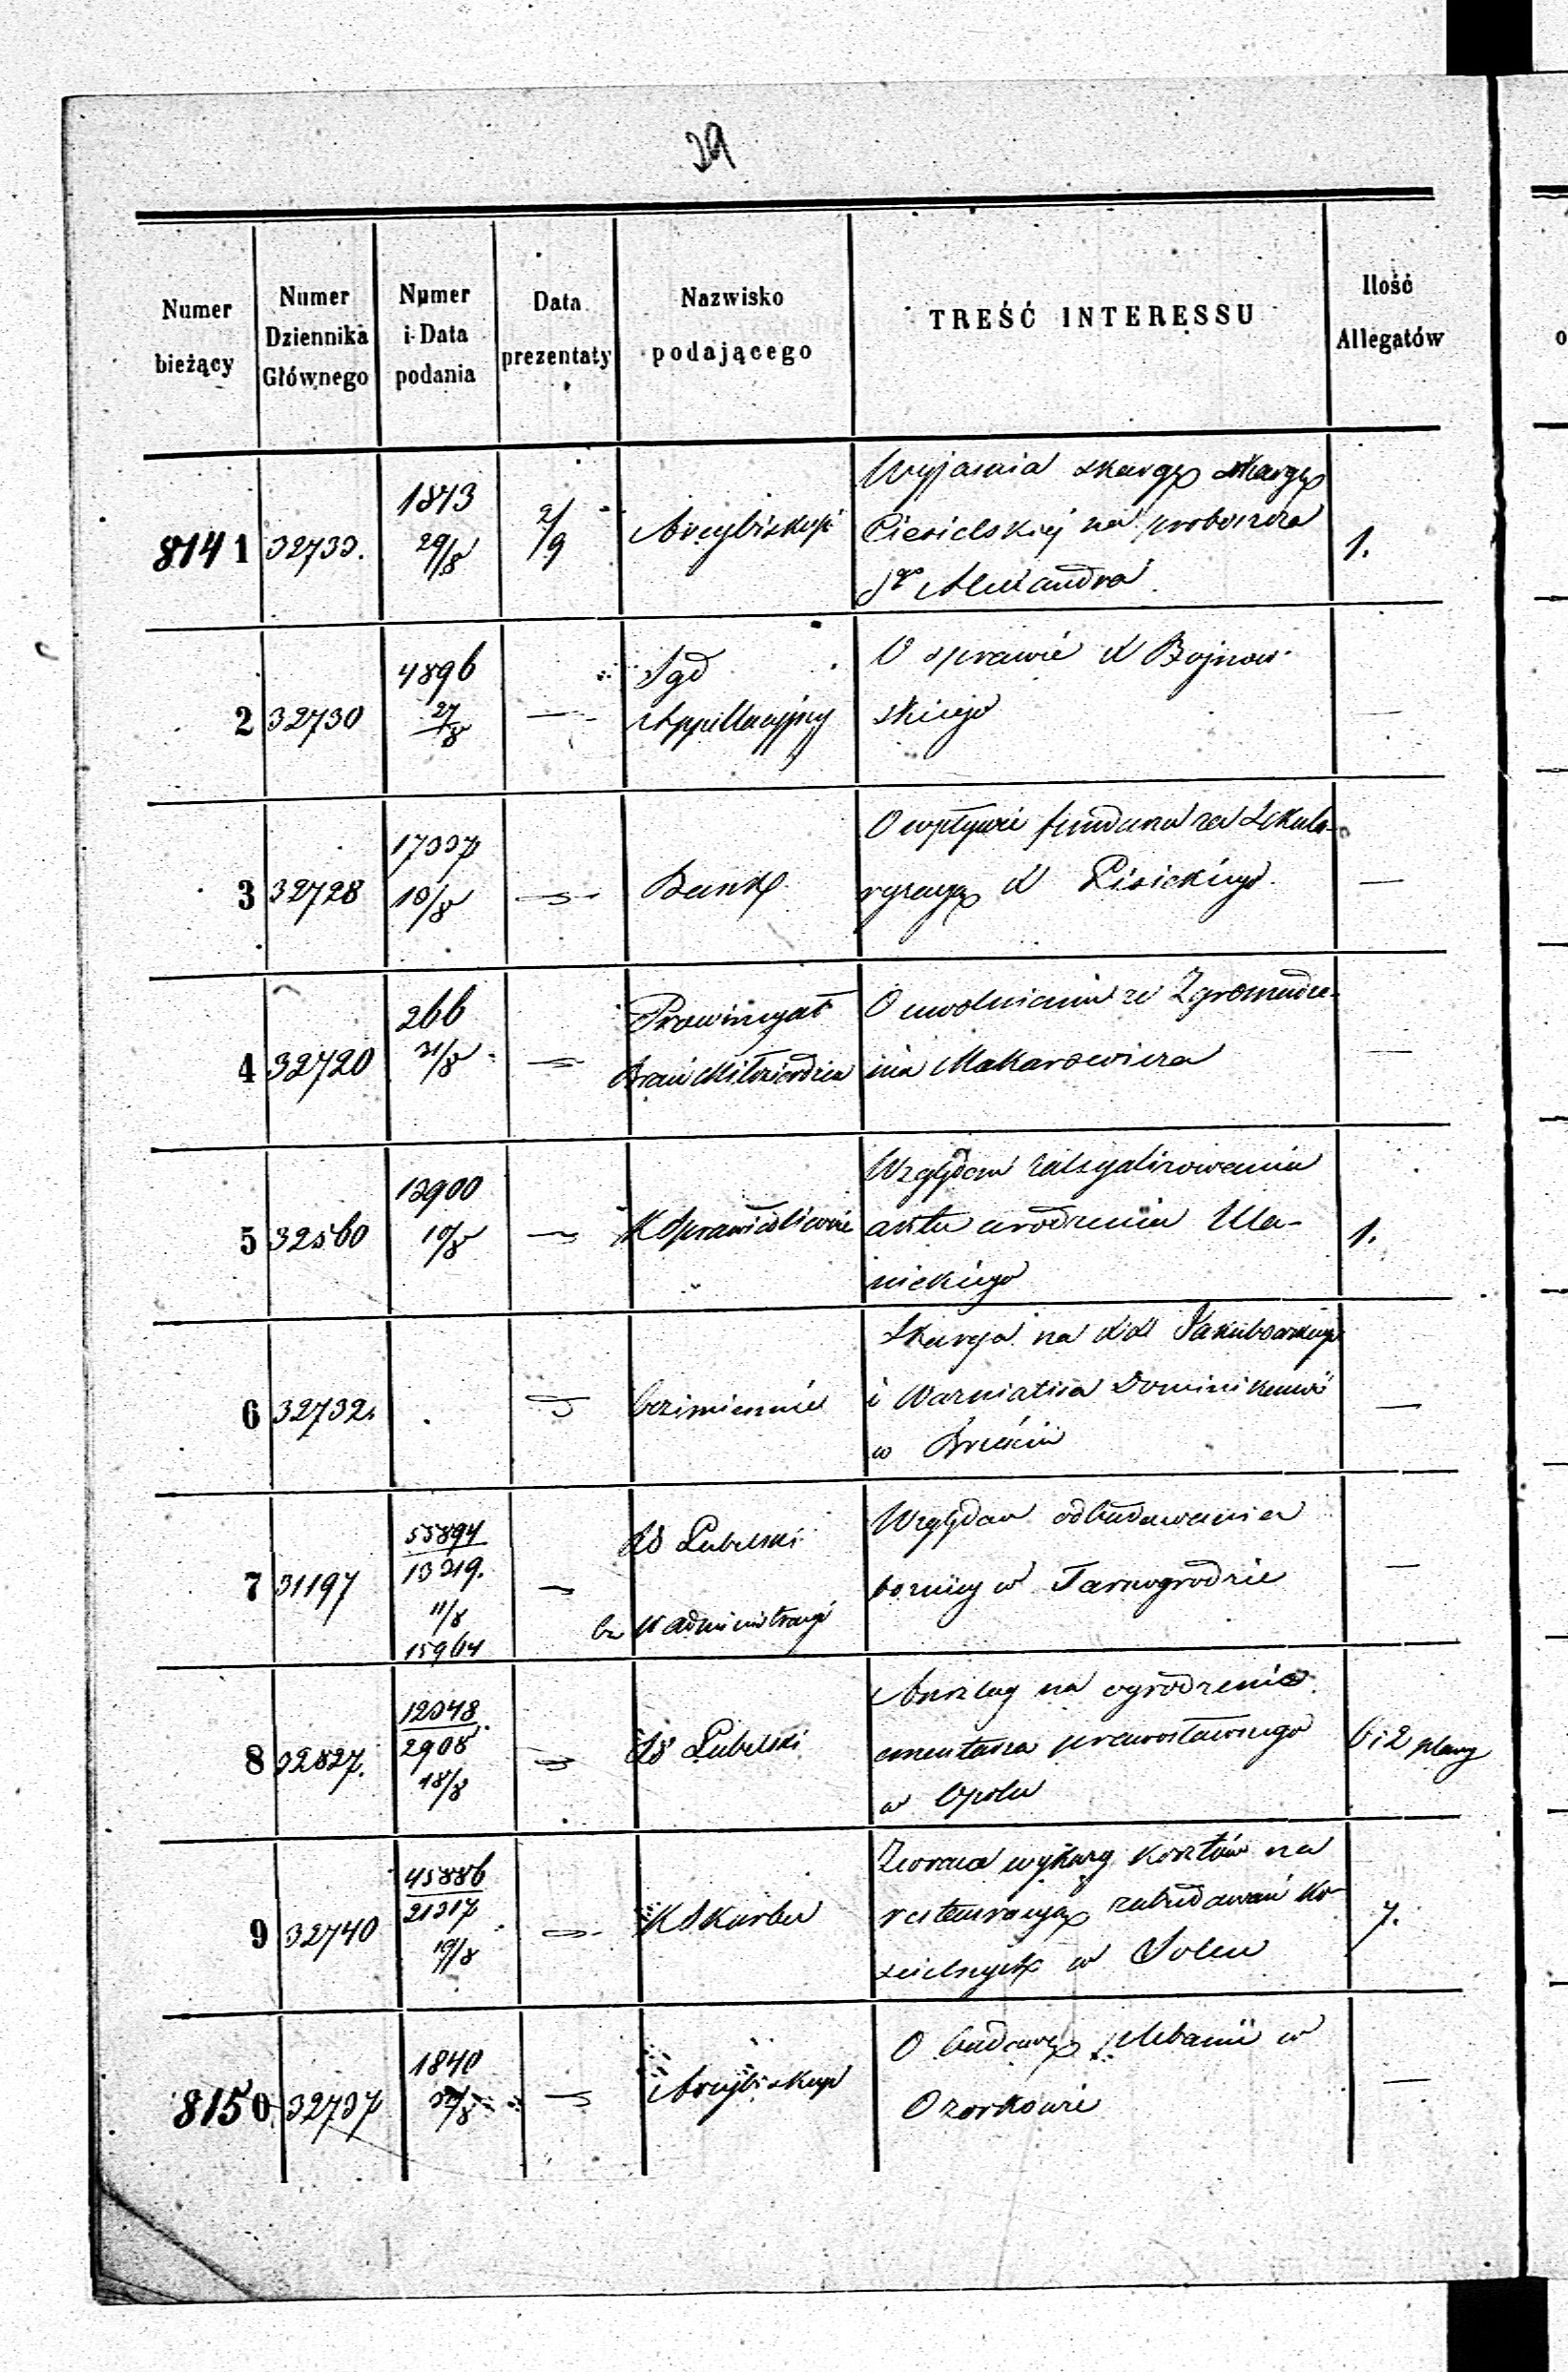 29
Numer bieżący | Numer Dziennika Głównego | Numer i Data podania | Data prezentaty | Nazwisko podającego | TREŚĆ INTERESSU | Ilość Allegatów
8141 | 32733. | 1873 29/8 | 2/9 | Arcybiskup | Wyjaśnia skargę skargę
Ciesielskiej na proboszcza
Sgo Alexandra | 1.
2 | 32730 | 4896 27/8 | — | Sąd Appellacyjny | O sprawie X Bojnow-
skiego | —
3 | 32728 | 17337 18/8 | — | Bank | O wpływie fundusza za Sekula-
ryzacyą X Lisickiego | —
4 | 32720 | 266 31/8 | — | Prowincyał Braci Miłosierdzia | O uwolnienie ze Zgromadze-
nia Makarowicza | —
5 | 32560 | 13900 10/8 | — | K Sprawiedliwości | Względem zalegalizowania
aktu urodzenia Ula-
nickiego | 1.
6 | 32732. | | — | bezimiennie | Skarga na XX Jakubowskiego
i Warniatisa Dominikanów
w | —
7 | 31197 | 55894 13319. 11/8 15964 | — | RG Lubelski K administracyi | Względem odbudowania
bożnicy w Tarnogrodzie | —
8 | 32827. | 12348 2908 18/8 | — | RG Lubelski | Anszlag na ogrodzenie
cmentarza prawosławnego
w Opolu | 6 i 2 plany
9 | 32740 | 45886 21317 19/8 | — | K Skarbu | Zwraca wykazy kosztów na
restauracyą zabudowań ko-
ścielnych w Solcu | 7.
8150 | 32737 | 1840 /8 | — | Arcybiskup | O budowę plebanii w
Ozorkowie | —